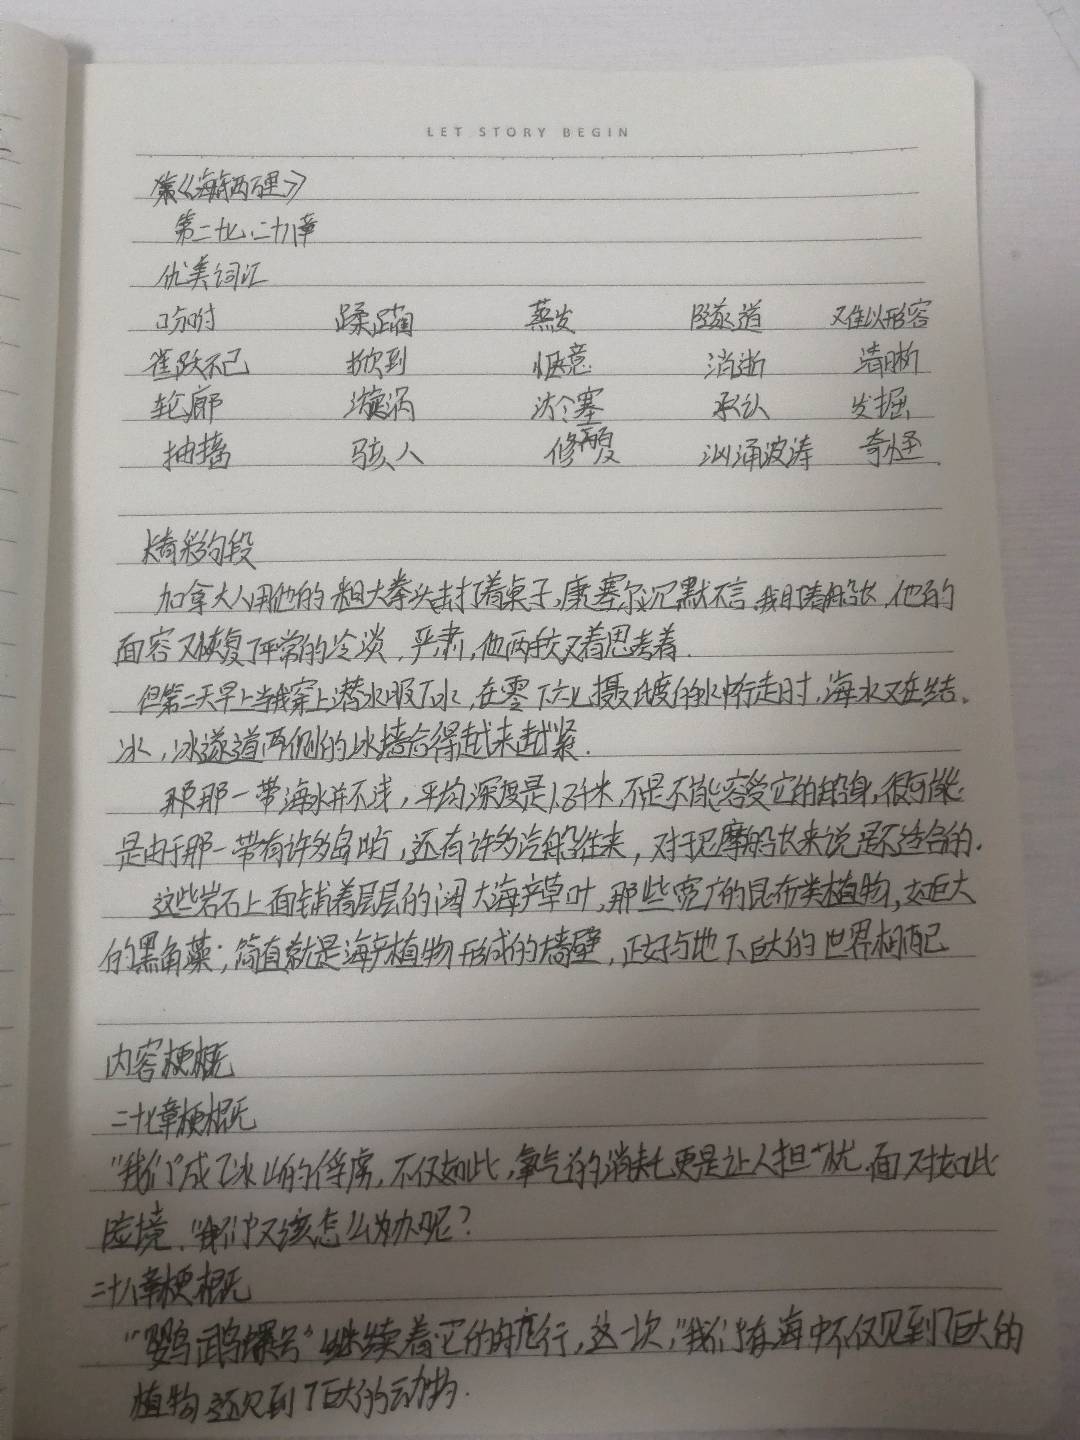 LET STORY BEGIN
《海底两万里》
第二十七、二十八章
优美词汇
吩咐 蹂躏 蒸发 隧道 难以形容
雀跃不已 掀到 惬意 消逝 清晰
轮廓 漩涡 沈塞 承认 发掘
抽搐 骇人 修复 汹涌波涛 奇怪
精彩句段
加拿大人用他的粗大拳头击打着桌子,康塞尔沉默不言,我盯着船长,他的
面容又恢复了平常的冷淡,严肃,他两手交叉着思考着.
但第二天早上当我穿上潜水服下水,在零下六七摄氏度的水中行走时,海水又在结
冰,冰隧道两侧的冰墙合得越来越紧.
那一带海水并不浅,平均深度是1.8千米,不是不能容受它的船身,很可能
是由于那一带有许多岛屿,还有许多汽船往来,对于尼摩船长来说是不适合的.
这些岩石上面铺着层层的阔大海产草叶,那些宽广的昆布类植物,如巨大
的黑角藻;简直就是海产植物形成的墙壁,正好与地下巨大的世界相配
内容梗概
二十七章梗概
"我们"成了冰山的俘虏,不仅如此,氧气的消耗更是让人担忧.面对如此
险境,"我们"又该怎么办呢?
二十八章梗概
"鹦鹉螺号"继续着它的航行,这一次,"我们"在海中不仅见到了巨大的
植物还见到了巨大的动物.